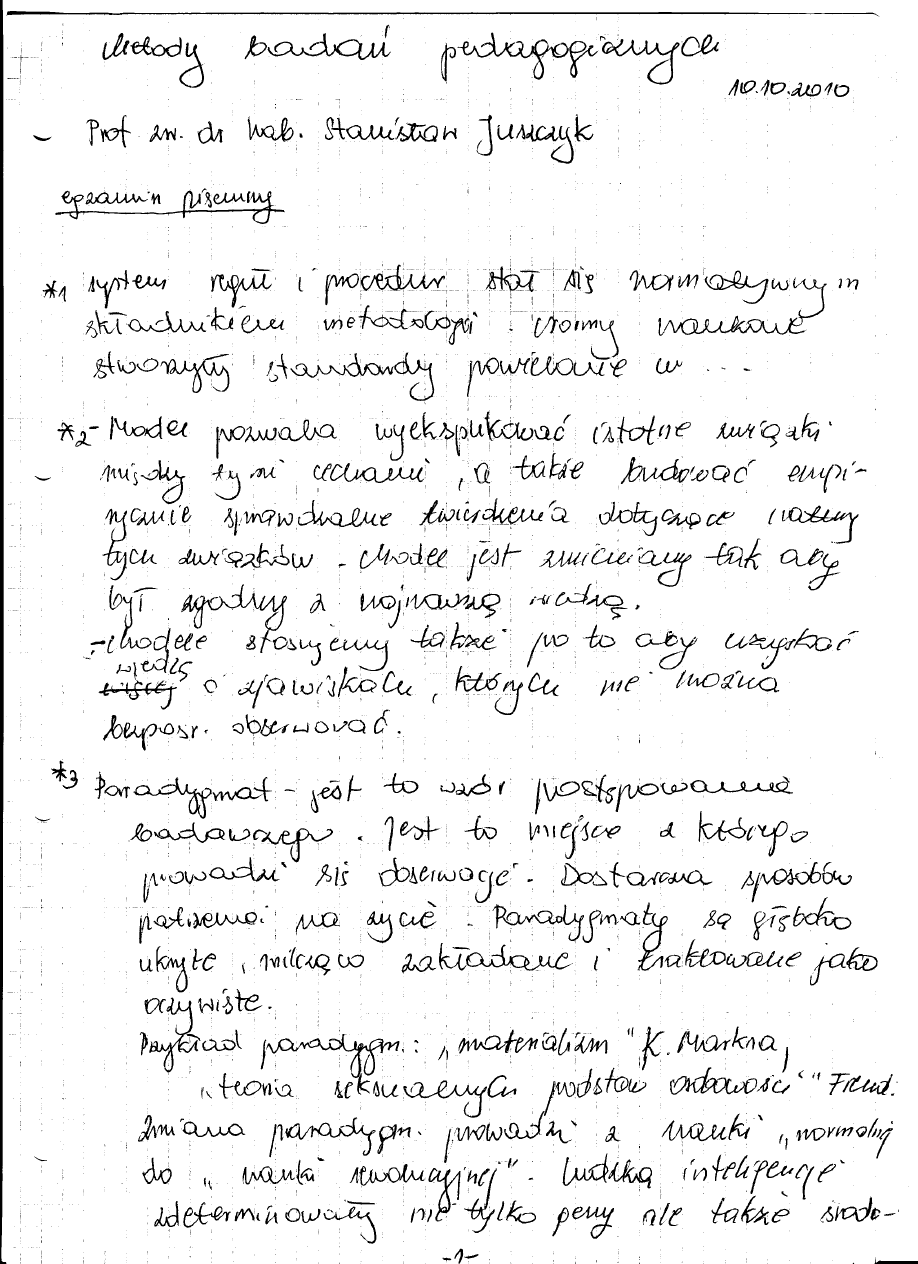 Metody badań pedagogicznych
10.10.2010
- Prof zw. dr hab. Stanisław Juszczyk
egzamin pisemny
*1 system reguł i procedur stał się normatywnym
składnikiem metodologii. Normy naukowe
stworzyły standardy powielane w ...
*2 - Model pozwala wyekspilkować istotne związki
między tymi cechami, a także budować empi-
rycznie sprawdzalne twierdzenia dotyczące natury
tych związków. Model jest zmieniany tak aby
był zgodny z najnowszą wiedzą.
- Modele stosujemy także po to aby uzyskać
wiedzę o zjawiskach, których nie można
bezpośr. obserwować.
*3 Paradygmat - jest to wzór postępowania
badawczego. Jest to miejsce z którego
prowadzi się obserwację. Dostarcza sposobów
patrzenia na życie. Paradygmaty są głęboko
ukryte, milcząco zakładane i traktowane jako
oczywiste.
Przykład paradygm.: „materializm" K. Marksa,
„teoria seksualnych podstaw osobowości" Freud.
Zmiana paradygm. prowadzi z nauki „normalnej
do „nauki rewolucyjnej". Ludzką inteligencję
zdeterminowały nie tylko geny ale także środo-
-1-